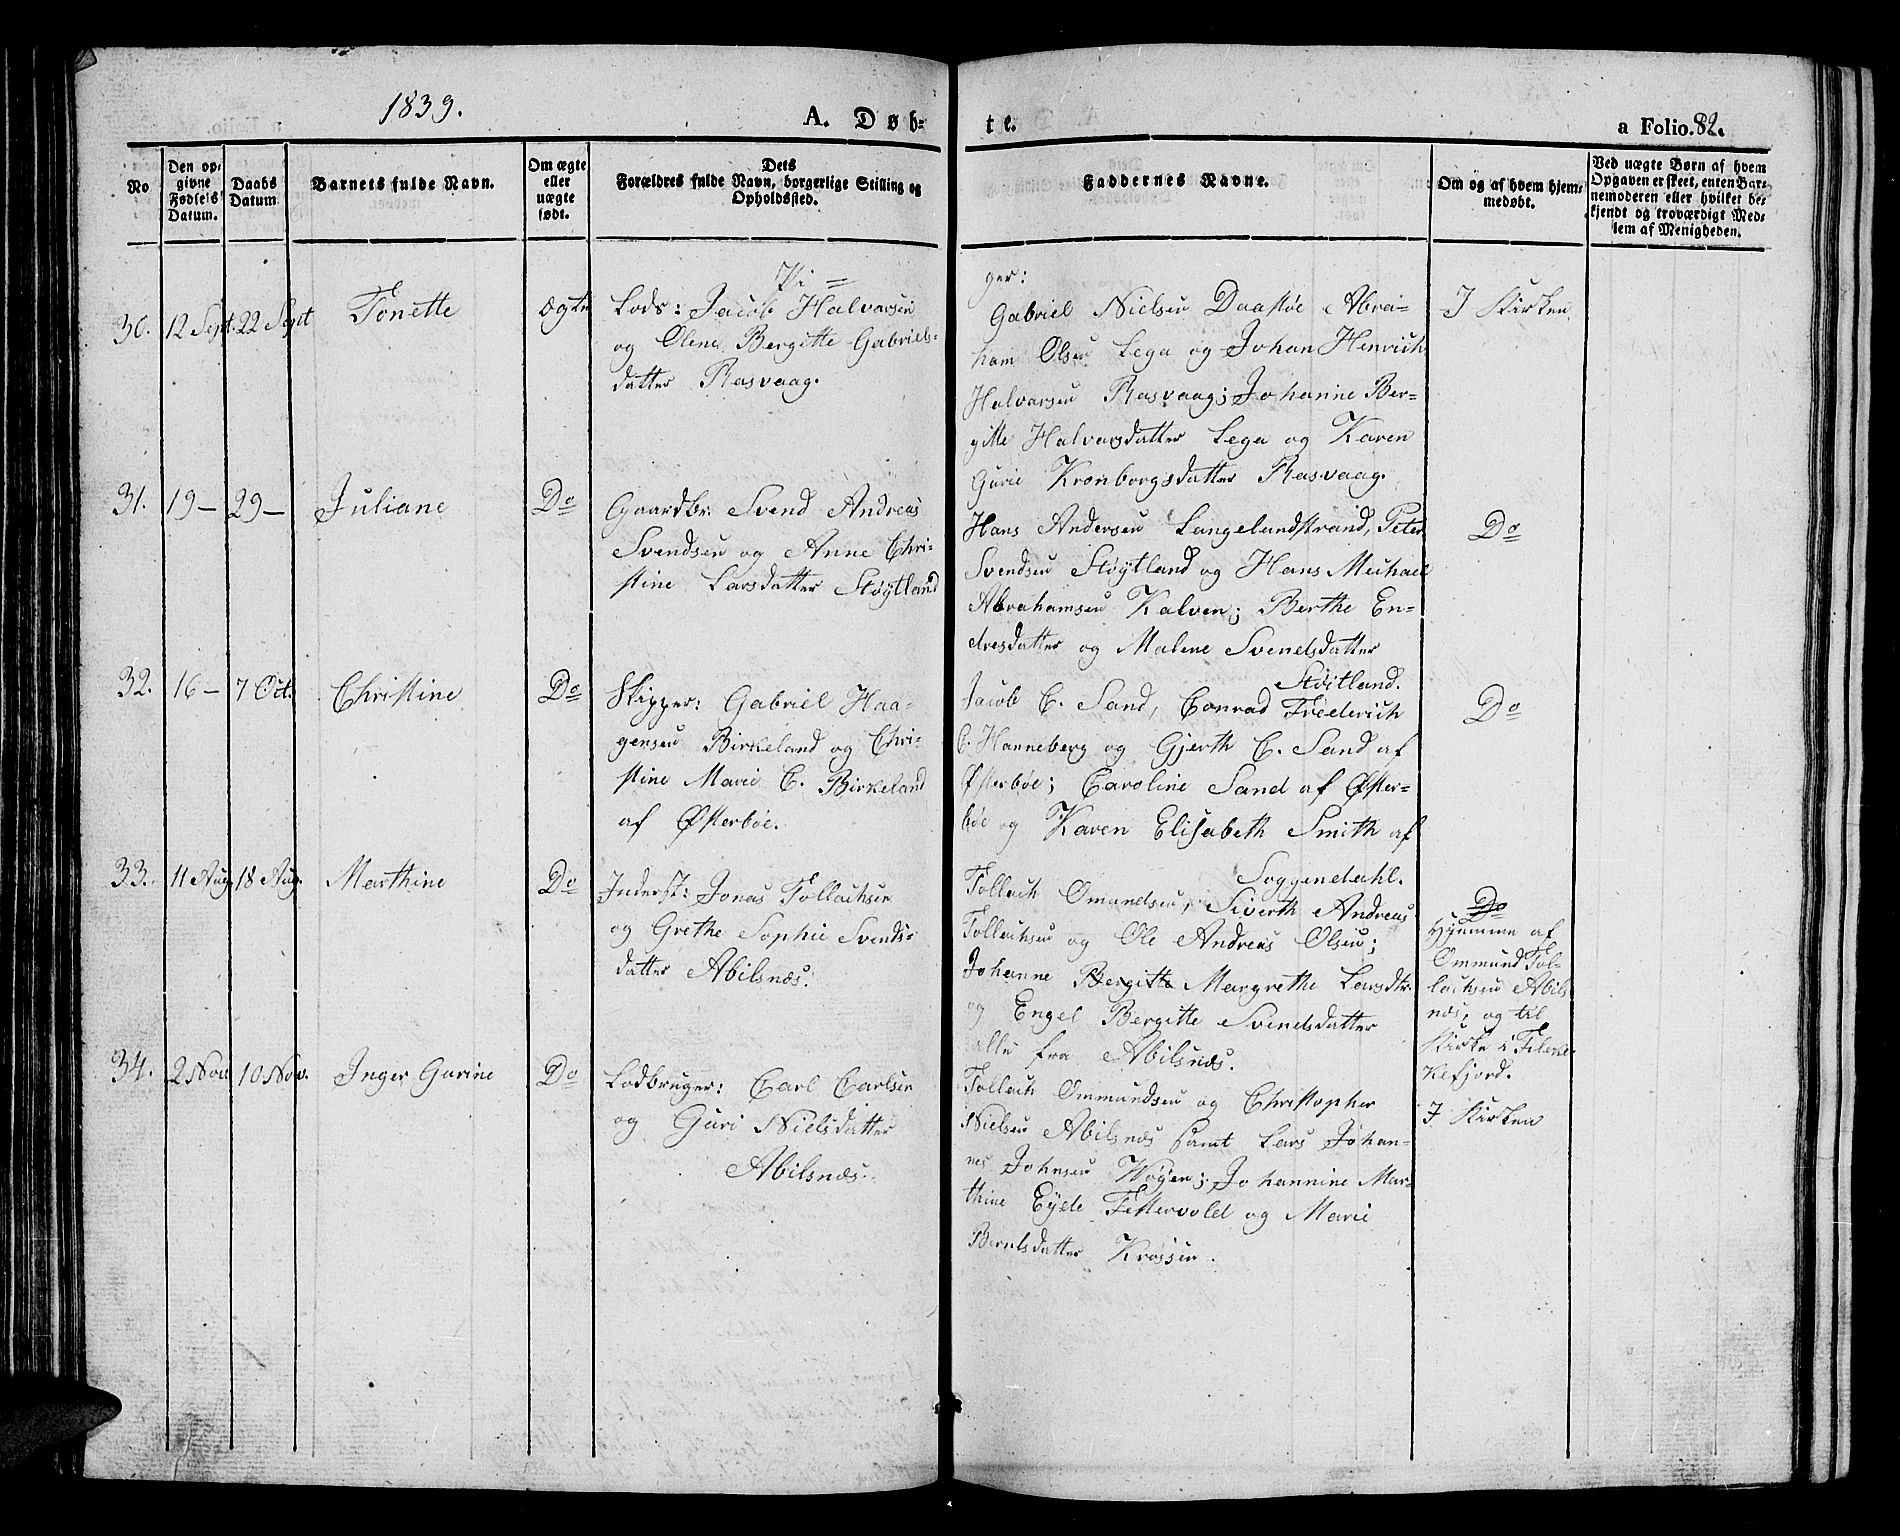 1839.
A. Døb-
te.
a Folio. 82.
No
Den op-
givne
Fødsels
Datum.
Daabs
Datum
Barnets fulde Navn.
Om ægte
eller
uægte
født.
Dets
Forældres fulde Navn, borgerlige Stilling og
Opholdssted.
Faddernes Navne.
Om og af hvem hjem-
medøbt.
Ved uægte Børn af hvem
Opgaven er skeet, enten Bar-
nemoderen eller hvilket be-
kjendt og troværdigt Med-
lem af Menigheden.
Pi=
ger:
30. 12 Sept. 22 Sept Tonette ægte
Lods: Jacob Halvarsen
og Olene Bergitte Gabriels-
datter Rasvaag.
Gabriel Nielsen Daatiøe Abra-
ham Olsen Lega og Johan Henrich
Halvarsen Rasvaag; Johanne Ber-
gitte Halvarsdatter Lega og Karen
Gurie Kronborgsdatter Rasvaag.
I Kirken.
31. 19 — 29 — Juliane Do
Gaardbr: Svend Andreas
Svendsen og Anne Chri-
stine Larsdatter Støytland
Hans Andersen Langelandstrand, Peter
Svendsen Støytland og Hans Michael
Abrahamsen Kalven; Berthe En-
dresdatter og Malene Svendsdatter
Støitland.
Do
32. 16 — 7 Oct. Christine Do
Skipper: Gabriel Haa-
gensen Birkeland og Chri-
stine Marie C. Birkeland
af Østerbøe.
Jacob C. Sand, Conrad Frederich
C. Hanneberg og Gjerth C. Sand af
Østerbøe; Caroline Sand af Øster-
bøe og Karen Elisabeth Smith af
Soggendahl.
Do
33. 11 Aug. 18 Aug. Marthine Do
Inderst: Jonas Tollachsen
og Grethe Sophie Svends-
datter Abilsnæs.
Tollach Omundsen, Siverth Andreas
Tollachsen og Ole Andreas Olsen;
Johanne Bergitte Margrethe Larsdtr.
og Engel Bergitte Svendsdatter
alle fra Abilsnæs.
Do
Hjemme af
Ommund Tol-
lachsen Abils-
næs, og til
Kirke i Flek-
kefjord.
34. 2 Nov. 10 Nov. Inger Gurine Do
Lodbruger: Carl Carlsen
og Guri Nielsdatter
Abilsnæs.
Tollach Ommundsen og Christopher
Nielsen Abilsnæs samt Lars Johan-
nes Johnsen Wøyen; Johannine Mar-
thine Eyde Tettervold og Marie
Berntsdatter Krossen.
I Kirken